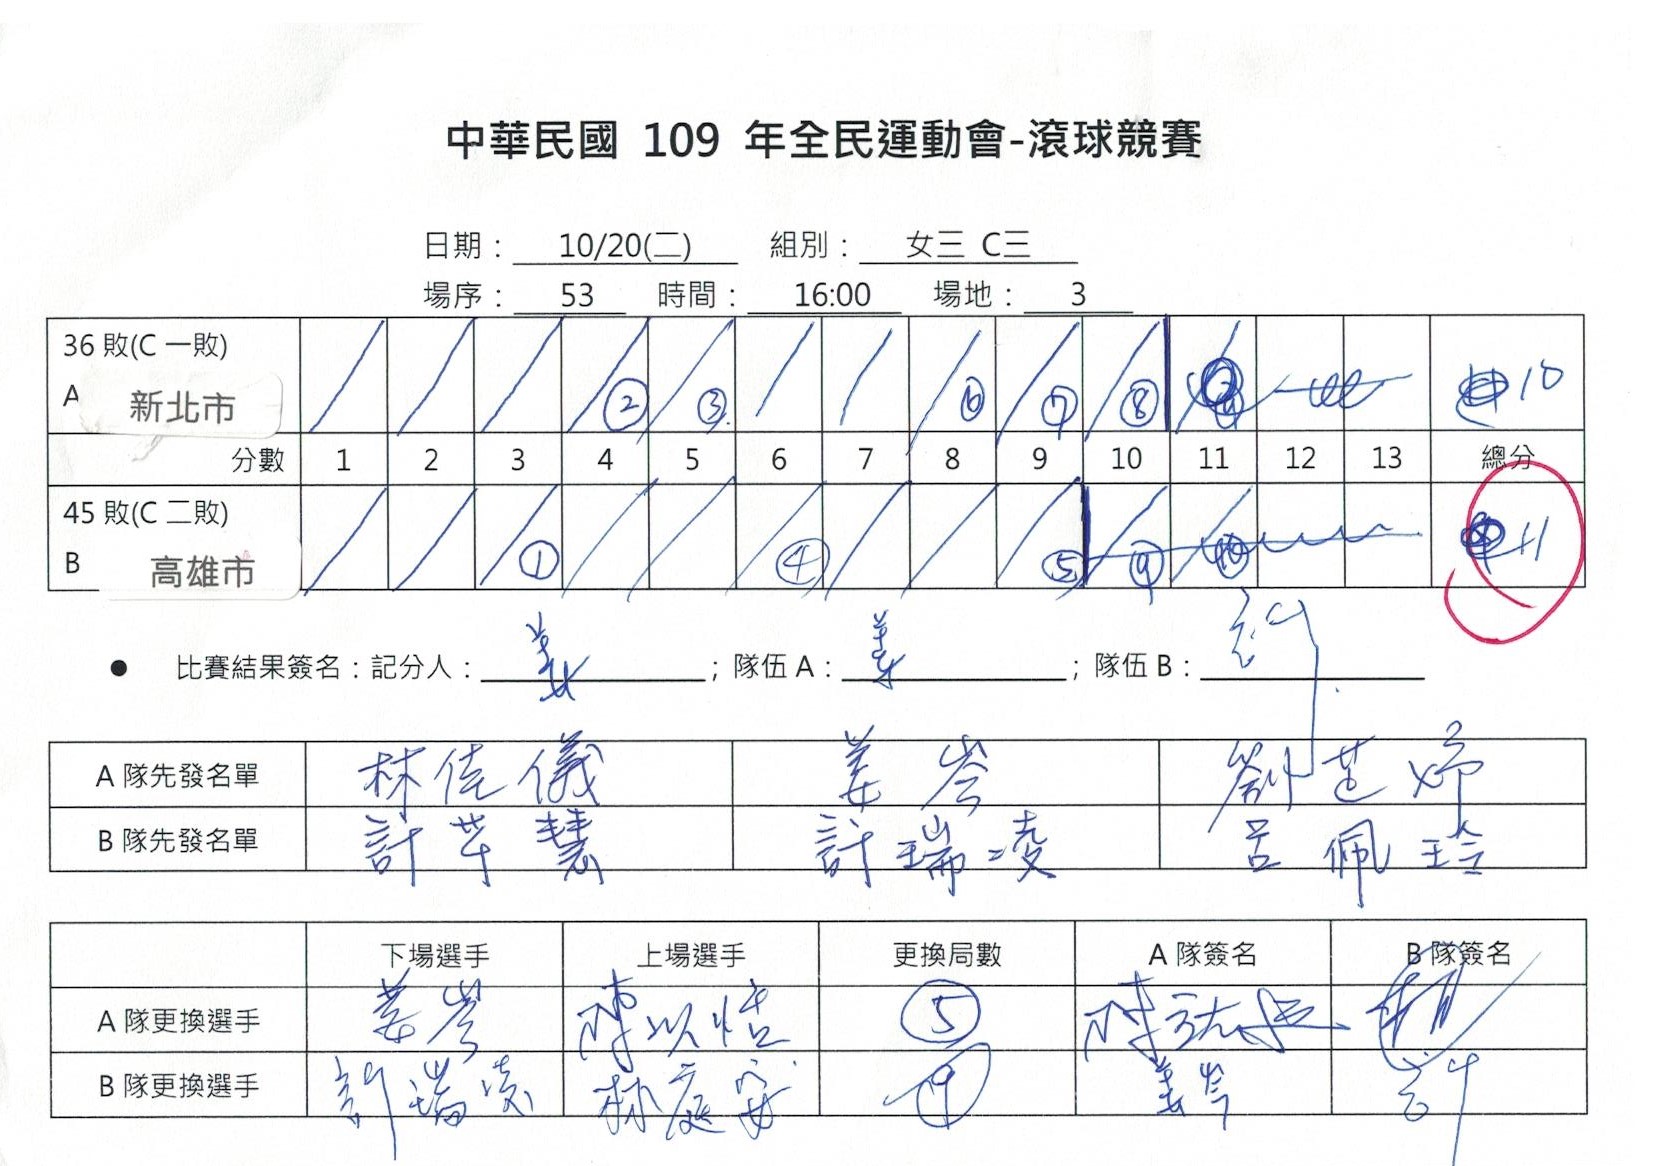 中華民國 109 年全民運動會-滾球競賽
日期： 10/20(二) 組別： 女三 C三
場序： 53 時間： 16:00 場地： 3
36 敗(C 一敗)
A 新北市 ② ③ ⑥ ⑦ ⑧ 10
分數 1 2 3 4 5 6 7 8 9 10 11 12 13 總分
45 敗(C 二敗)
B 高雄市 ① ④ ⑤ ⑨ ⑩ 11
● 比賽結果簽名：記分人： 姜 ；隊伍 A： 姜 ；隊伍 B： 許
A 隊先發名單 林佳儀 姜岑 劉芷婷
B 隊先發名單 許芊慧 許瑞凌 呂佩玲
下場選手 上場選手 更換局數 A 隊簽名 B 隊簽名
A 隊更換選手 姜岑 陳以恬 ⑤
B 隊更換選手 許瑞凌 林庭安 ⑨ 姜岑 許